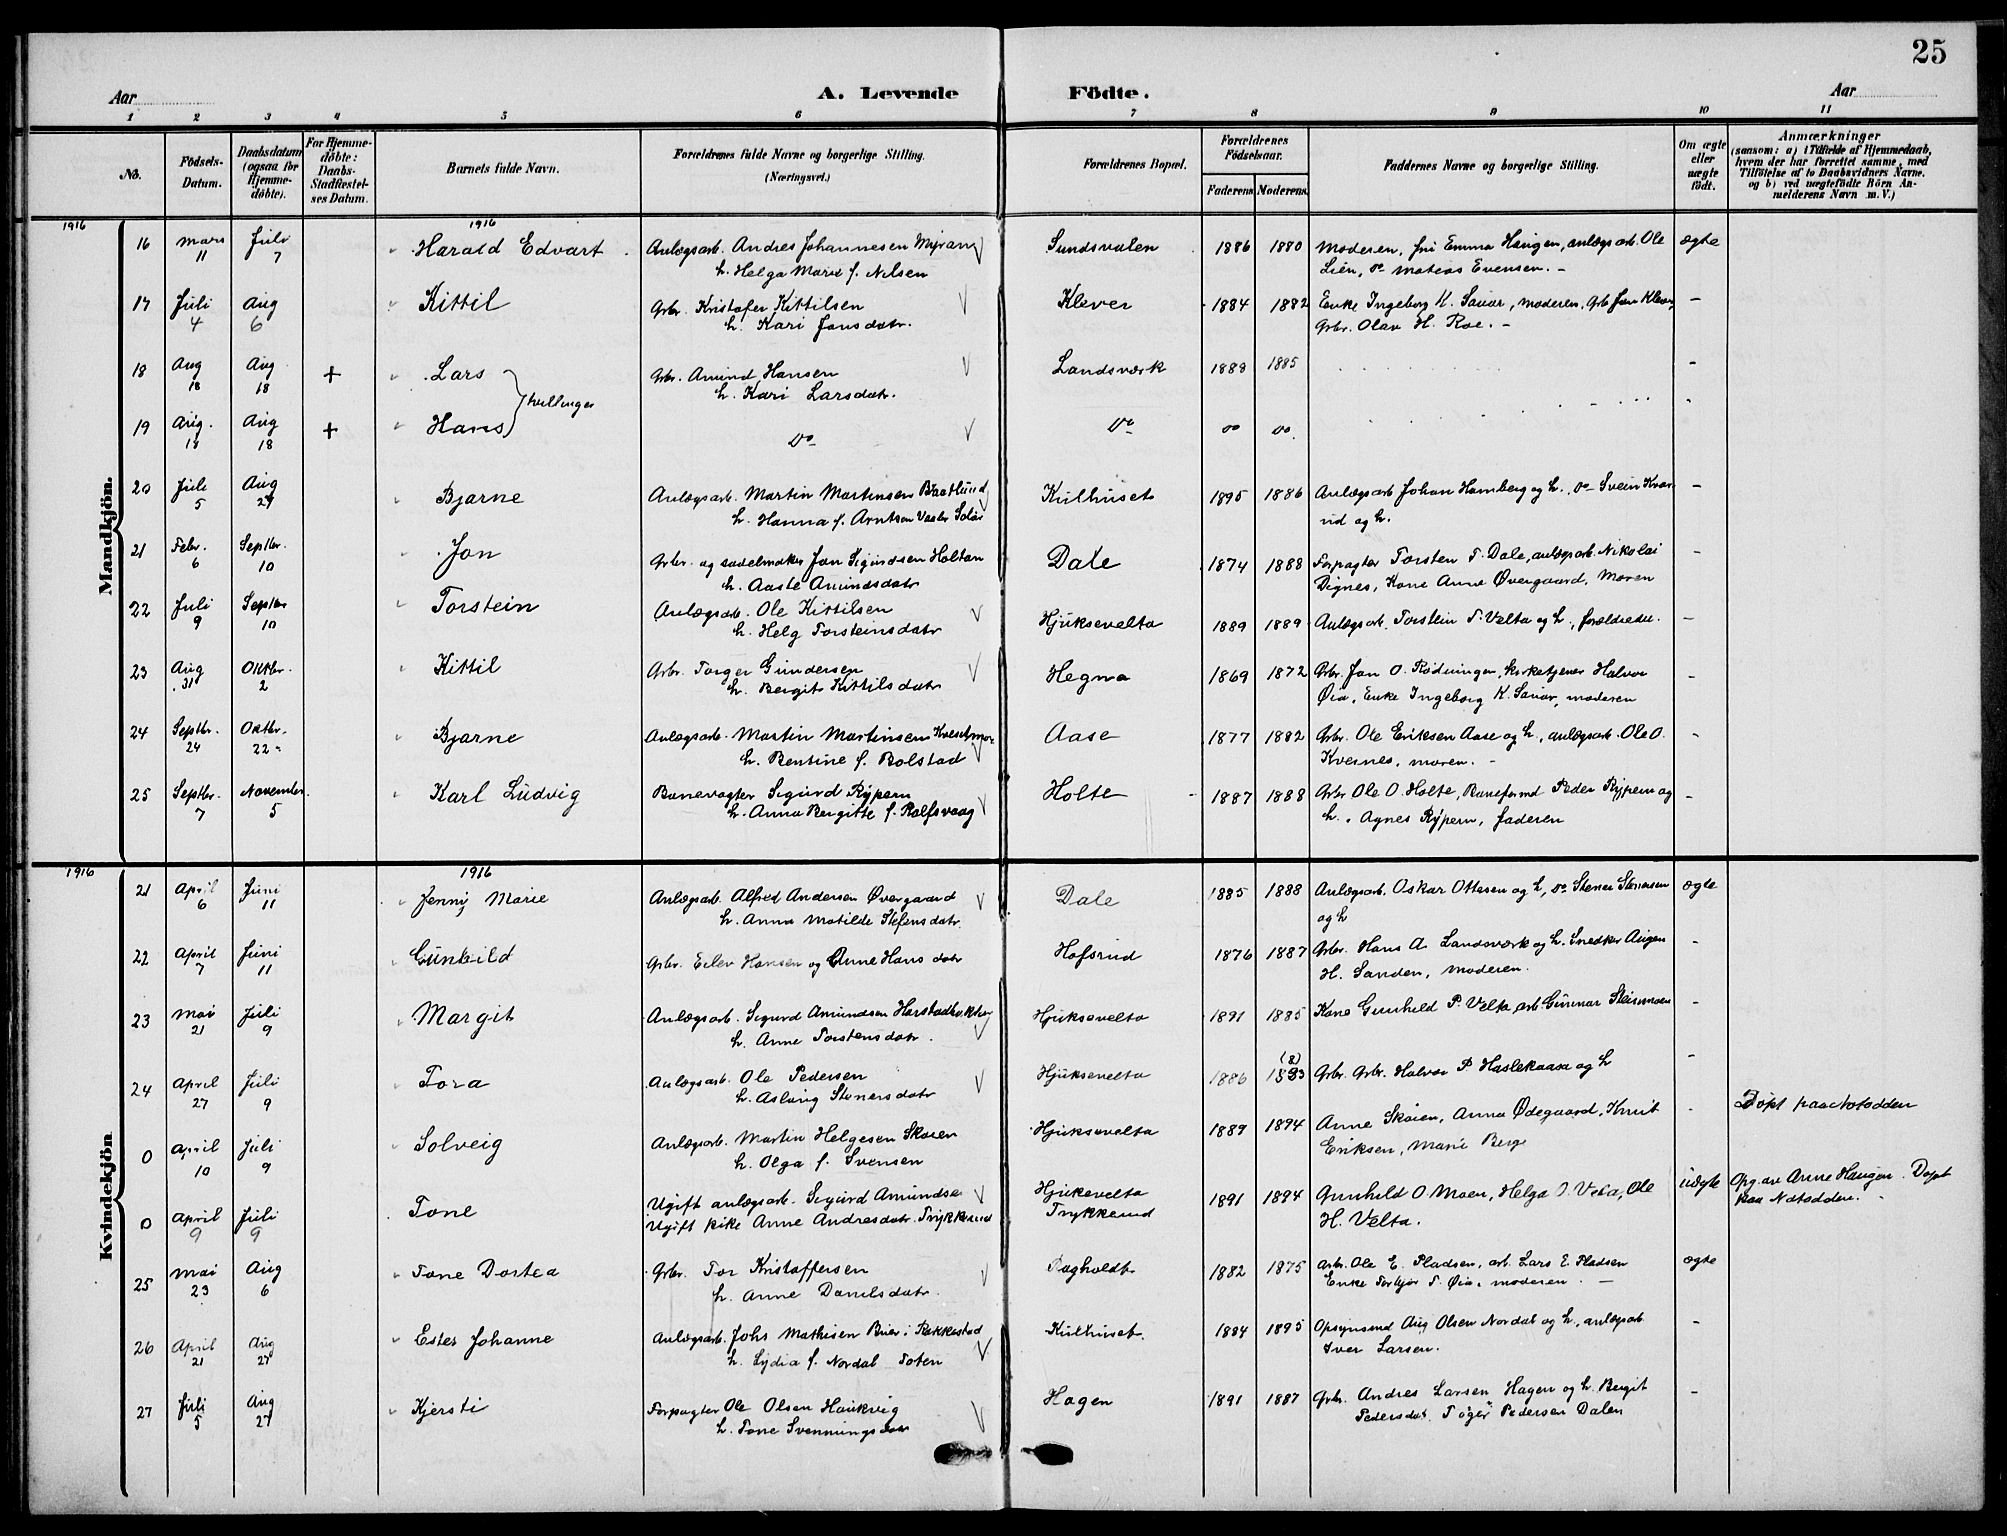 25
Aar
A. Levende
Födte.
Aar
1 2 3 4 5 6 7 8 9 10 11
No.
Födsels-Datum.
Daabsdatum (ogsaa for Hjemme-döbte).
For Hjemme-döbte: Daabs-Stadfæstel-ses Datum.
Barnets fulde Navn.
Forældrenes fulde Navne og borgerlige Stilling. (Næringsvei.)
Forældrenes Bopæl.
Forældrenes Födselsaar.
Faderens Moderens
Faddernes Navne og borgerlige Stilling.
Om ægte eller uægte födt.
Anmærkninger
(saasom: a) i Tilfælde af Hjemmedaab,
hvem der har forrettet samme, med
Tilföielse af to Daabsvidners Navne.
og b) ved uægtefödte Börn An-
melderens Navn m.V.)
Mandkjön.
1916 1916
16 Mars 11 Juli 7 Harald Edvart Anlægsarb. Andres Johannesen Myrang Sundsvalen 1886 1880 Moderen, fru Emma Haugen, anlægsarb. Ole ægte
h. Helga Marie f. Nilsen Lien, do Mateas Evensen. -
17 Juli 4 Aug 6 Kittil Gbr. Kristofer Kittilsen Klever 1884 1882 Enke Ingeborg K. Sauar, moderen, Gbr Jon Klever, -
h. Kari Jonsdatr. Gbr. Olav H. Roe. -
18 Aug 18 Aug 18 + Lars Gbr. Amund Hansen Landsværk 1888 1885 -
tvillinger h. Kari Larsdatr.
19 Aug. 18 Aug 18 + Hans do do do do
20 Juli 5 Aug 27 Bjarne Anlægsarb. Martin Martinsen Baathund Kulhuset 1895 1886 Anlægsarb Johan Hamberg og h. do Svein Kvar- -
h. Hanna f. Arntsen Vaaler Solør rud og h.
21 Febr. 6 Septbr. 10 Jon Gbr. og sadelmaker Jon Sigurdsen Holtan Dale 1874 1888 Forpagter Torsten T. Dale, anlægsarb. Nikolai -
h. Aaste Amundsdatr Dignes, Kone Anne Øvergaard, Moren
22 Juli 9 Septbr 10 Torstein Anlægsarb. Ole Kittilsen Hjuksevelta 1889 1889 Anlægsarb. Torstein T. Velta og h., forældrene. -
h. Helg Torsteinsdatr
23 Aug 31 Oktbr. 2 Kittil Gbr. Torger Gundersen Hegna 1869 1872 Gbr. Jon O. Rødningen, kirketjener Halvor -
h. Bergit Kittilsdatr Øia, Enke Ingeborg K. Sauar, moderen
24 Septbr. 24 Oktbr. 22 Bjarne Anlægsarb. Martin Martinsen Aase 1877 1882 Gbr. Ole Eriksen Aase og h., anlægsarb. Ole O. -
h. Bentine f. Bolstad Kvesnes, moren. -
25 Septbr. 7 November 5 Karl Ludvig Banevogter Sigurd Rypern Holte 1887 1888 Gbr Ole O. Holte, Baneformd Peder Rypern og -
h. Anna Bergitte f. Rolfsvaag h., Agnes Rypern, faderen
Kvindekjön
1916 1916
21 April 6 Juni 11 Jenny Marie Anlægsarb. Alfred Andersen Øvergaard Dale 1885 1888 Anlægsarb. Oskar Ottesen og h, do Stener Stenersen ægte
h. Anna Matilde Stefensdatr. og h
22 April 7 Juni 11 Gunhild Gbr. Eilev Hansen og Anne Hans datr Hafsrud 1876 1887 Gbr. Hans A. Landsværk og h. Snedker Augen -
H. Sanden, moderen.
23 Mai 21 Juli 9 Margit Anlægsarb. Sigurd Amundsen Hjuksevelta 1891 1885 Kone Gunhild P. Velta, arb. Gunnar Steinmoen -
h. Anne Torstensdatr.
24 April 27 Juli 9 Tora Anlægsarb. Ole Pedersen Hjuksevelta 1886 1883 (8) Gbr. Gbr. Halvor P Haslekaasa og h -
h. Aslaug Stenersdatr
0 April 10 Juli 9 Solveig Anlægsarb. Martin Helgesen Skoien Hjuksevelta 1889 1894 Anne Skoien, Anna Ødegaard, Knut - Døpt paa Notodden
h. Olga f. Svensen Eriksen, Marie Berg
0 April 9 Juli 9 Tone Ugift anlægsarb. Sigurd Amundsen Hjuksevelta 1891 1894 Gunhild O. Moen, Helga O. Velta, Ole uægte Opg. av Anne Haugen. Døpt
Ugift pike Anne Andresdatr. Trykkerud Trykkerud H. Velta. paa Notodden.
25 Mai 23 Aug 6 Tone Dortea Gbr. Tor Kristoffersen Dagholdt 1882 1875 Arb. Ole E. Pladsen, arb. Lars E. Pladsen ægte
h. Anne Danielsdatr. Enke Torbjør T. Øia, moderen. -
26 April 21 Aug 27 Ester Johanne Anlægsarb. Johs Mathisen Brier i Rakkestad Kulhuset. 1884 1895 Opsynsmd Aug. Olsen Nordal og h., anlægsarb -
h. Lydia f. Nordal Toten Iver Larsen.
27 Juli 5 Aug 27 Kjersti Forpagter Ole Olsen Haukvig Hagen 1891 1887 Gbr. Andres Larsen Hagen og h. Bergit -
h. Tone Svennungsdatr Pedersdat. Tøger Pedersen Dalen